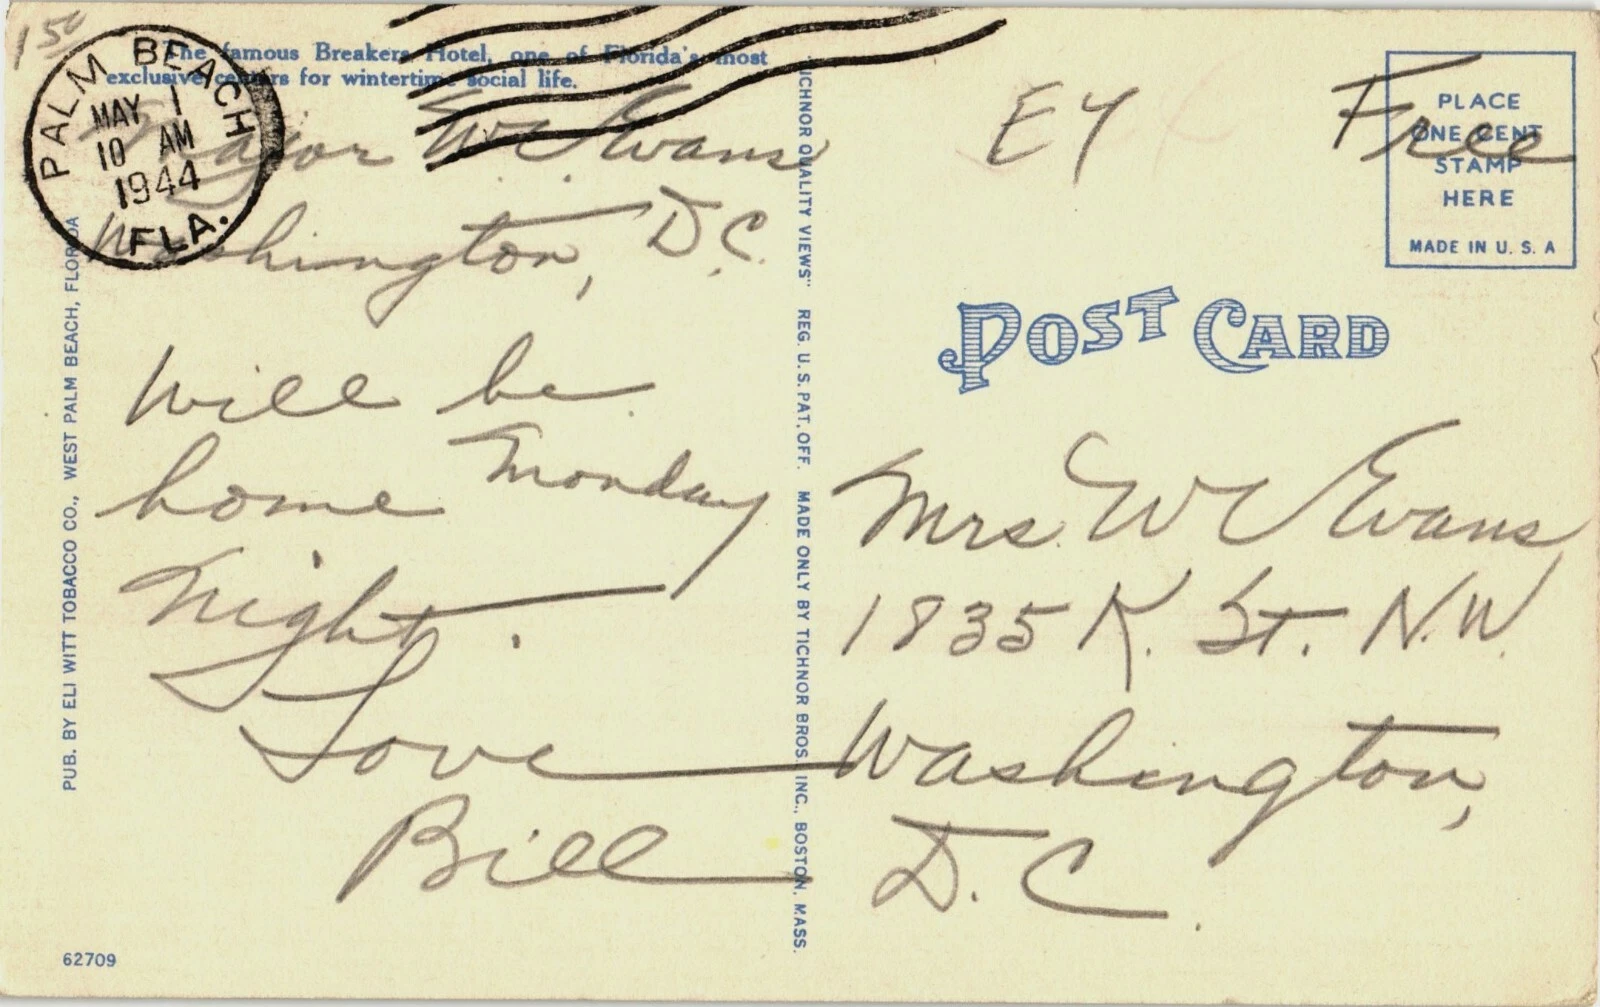 150
PALM BEACH
MAY 1
10 AM
1944
FLA.
The famous Breakers Hotel, one of Florida's most
exclusive centers for wintertime social life.
Major W C Evans
Washington, D.C.
Will be
home Monday
Night.
Love
Bill
EY
Free
PLACE
ONE CENT
STAMP
HERE
MADE IN U. S. A
POST CARD
Mrs. W C Evans
1835 K. St. N.W.
Washington,
D. C.
PUB. BY ELI WITT TOBACCO CO., WEST PALM BEACH, FLORIDA
TICHNOR QUALITY VIEWS" REG. U. S. PAT. OFF. MADE ONLY BY TICHNOR BROS. INC., BOSTON, MASS.
62709